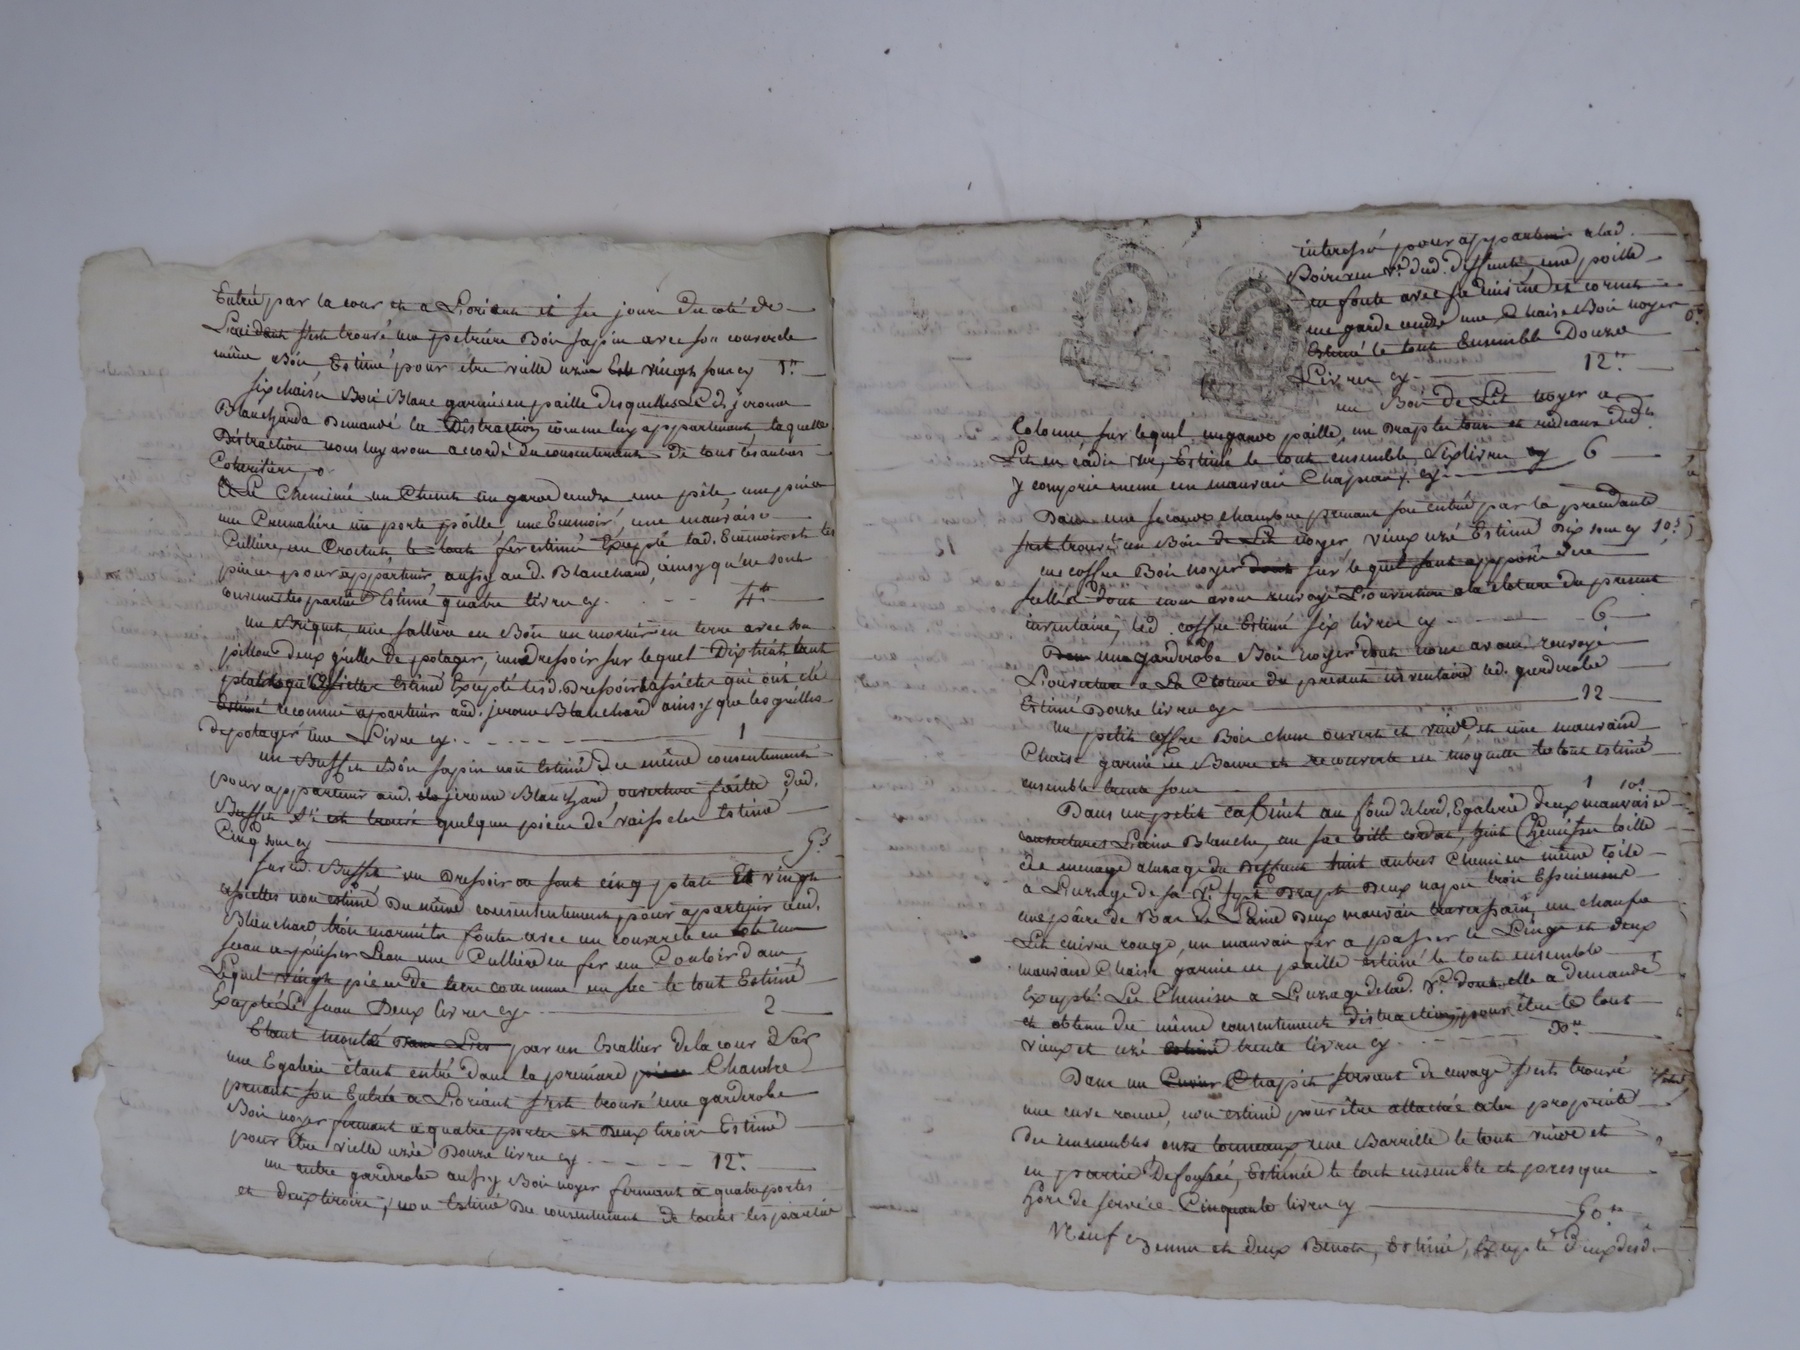 Entrée par la cour et a Lorient et ses jours du coté de
s'est trouvé une petriere Bois sapin avec son couvercle
même Bois Estimé pour etre vielle uzée vingt sous cy 1.
six chaises Bois Blanc garnies en paille desquelles Led. jerome
Blanchard a Demandé la Distraction comme luy appartenant laquelle
Distraction nous luy avons accordé du consentement De tous les autres
Cohéritiers
La Cheminé un Chenet un garde cendre une pêle une pince
une Cremalière un porte poille, une Ecumoir, une mauvaise
Cullière, un Crochet le tout fer estimé Excepté lad. Ecumoir et les
pinces pour appartenir aussy aud. Blanchard, ainsy qu'en sont
convenu les parties Estimé quatre livres cy 4
un Briquet, une sallière en Bois un mortier en terre avec son
pillon deux grilles De potager, un Dressoir sur lequel Dix huit tant
plats qu'assiettes Estimé Excepté lesd. Dressoir & assiettes qui ont été
reconnu appartenir aud. jerome Blanchard ainsy que les grilles
De potager une Livre cy 1
un Buffet Bois sapin non Estimé Du même consentement
pour appartenir aud. jerome Blanchard, ouverture faite dud.
Buffet s'i est trouvé quelques pièces de vaisselle Estimé
Cinq sous cy 5s
sur led. Buffet un Dressoir ou sont cinq plats Et vingt
assiettes non estimé Du même consentement pour apartenir aud.
Blanchard trois marmites fontes avec un couvercle en tole un
seau a puiser Leau une Cullière en fer un Couloir dans
Lequel vingt pièces de terre commune un sac le tout Estimé
Excepté Le seau Deux livres cy 2
Etant monté par un Escallier de la cour & sur
une Egalerie étant entré Dans la premiere Chambre
prenant son Entrée a Loriant s'est trouvé une garderobe
Bois noyer fermant a quatre portes et Deux tiroirs Estimé
pour être vielle uzée Douze livres cy 12
un autre garderobe aussy Bois noyer fermant a quatre portes
et deux tiroirs, non Estimé Du consentement de toutes les parties
interessé pour appartenir a lad.
Ve dud. deffunt une poille
en fonte avec sa
une garde cendre une Chaise Bois noyer
Estimé le tout Ensemble Douze
Livres cy 12
un Bois de Lit noyer a
Colonne sur lequel une paille, un Drap les tour et rideaux dud.
Lit en cadis Estimé le tout ensemble six livres cy 6
y compris meme un mauvais Chapeau cy
Dans une seconde chambre prenant son entrée par la precedante
s'est trouvé un Bois de Lit noyer vieux uzé Estimé Dix sous cy 10s
un coffre Bois noyer sur lequel sont apposé des
sellés dont nous avons renvoyé Louverture a la cloture du present
inventaire, led. coffre Estimé six livres cy 6
une garderobe Bois noyer dont nous avons renvoyé
Louverture a La Cloture du present inventaire led. garderobe
Estimé Douze livres cy 12
un petit coffre Bois chene ouvert et vuide, et une mauvaise
Chaise garnie en Bourre et recouverte en moquette le tout estimé
ensemble trente sous 1 10s
Dans un petit cabinet au fond de lad. Egalerie deux mauvaises
couvertures Laine Blanche, un sac toille huit Chemises toille
de menage a luzage du Deffunt huit autres Chemises même toile
a Luzage de sa Ve sept Draps Deux napes trois Essuiemains
une paire de Bas de Laine Deux mauvais traversains, un chaufe
Lit cuivre rouge, un mauvais fer a passer le Linge et deux
mauvaises Chaises garnie en paille estimé le tout ensemble
Excepté Les Chemises a Luzage de lad. Ve dont elle a demandé
et obtenu du même consentement distraction, pour être le tout
vieux et uzé trente livres cy 30
Dans un Chapit servant de cuvage s'est trouvé
une cuve ronde, non estimé pour être attachée a la proprieté
Des immeubles onze tonneaux une Barrille le tout vuide et
en partie Defoncée, Estimée le tout ensemble et presque
hors de service Cinquante livres cy 50
Neuf et deux Benots, Estimé, Excepté deux desd.